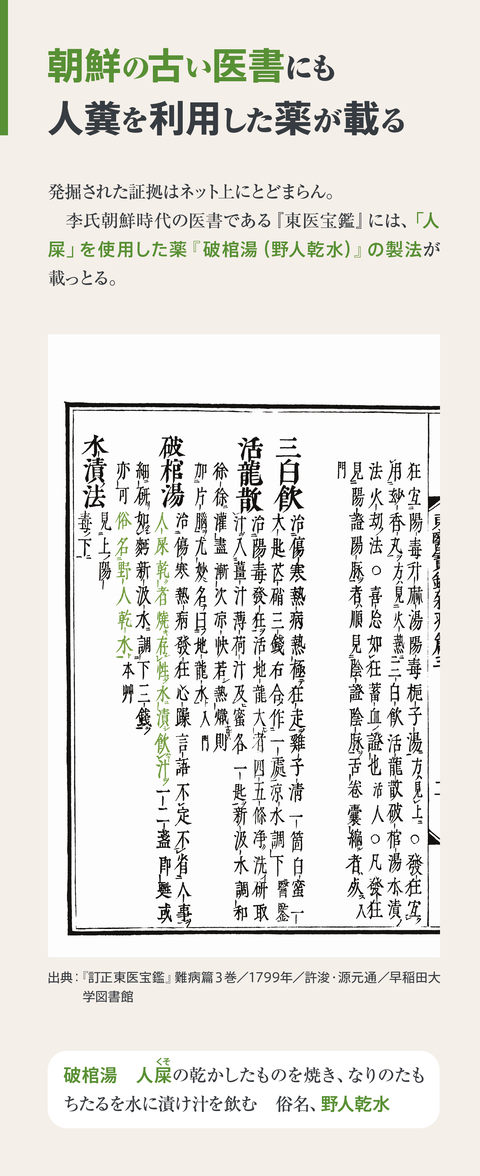 朝鮮の古い医書にも
人糞を利用した薬が載る
発掘された証拠はネット上にとどまらん。
李氏朝鮮時代の医書である『東医宝鑑』には、「人
屎」を使用した薬『破棺湯（野人乾水）』の製法が
載っとる。
狂宜陽毒升麻湯陽毒梔子湯方見上○發狂宜
用玅香丸方見火熱三白飮活龍散破棺湯水漬
法火刼法○喜忘如狂蓄血證也活人○凡發狂
見陽證陽脉者順見陰證陰脉舌卷囊縮者死入
門
三白飮 治傷寒熱病熱極狂走雞子清一箇白蜜一
大匙芒硝三錢右合作一處凉水調下醫鑒
活龍散 治陽毒發狂活地龍大者四五條淨洗硏取
汁入薑汁薄荷汁及蜜各一匙新汲水調和
徐徐灌盡漸次凉快若熱熾則
加片腦尤妙名曰地龍水入門
破棺湯 治傷寒熱病發狂心躁言語不定不省人事
人屎乾者燒存性水漬飮汁一二盞卽甦或
細硏如麪新汲水調下三錢
亦可俗名野人乾水本艸
水漬法 見上陽
毒下
出典：『訂正東医宝鑑』難病篇3巻／1799年／許浚・源元通／早稲田大
学図書館
くそ
破棺湯　人屎の乾かしたものを焼き、なりのたも
ちたるを水に漬け汁を飲む　俗名、野人乾水